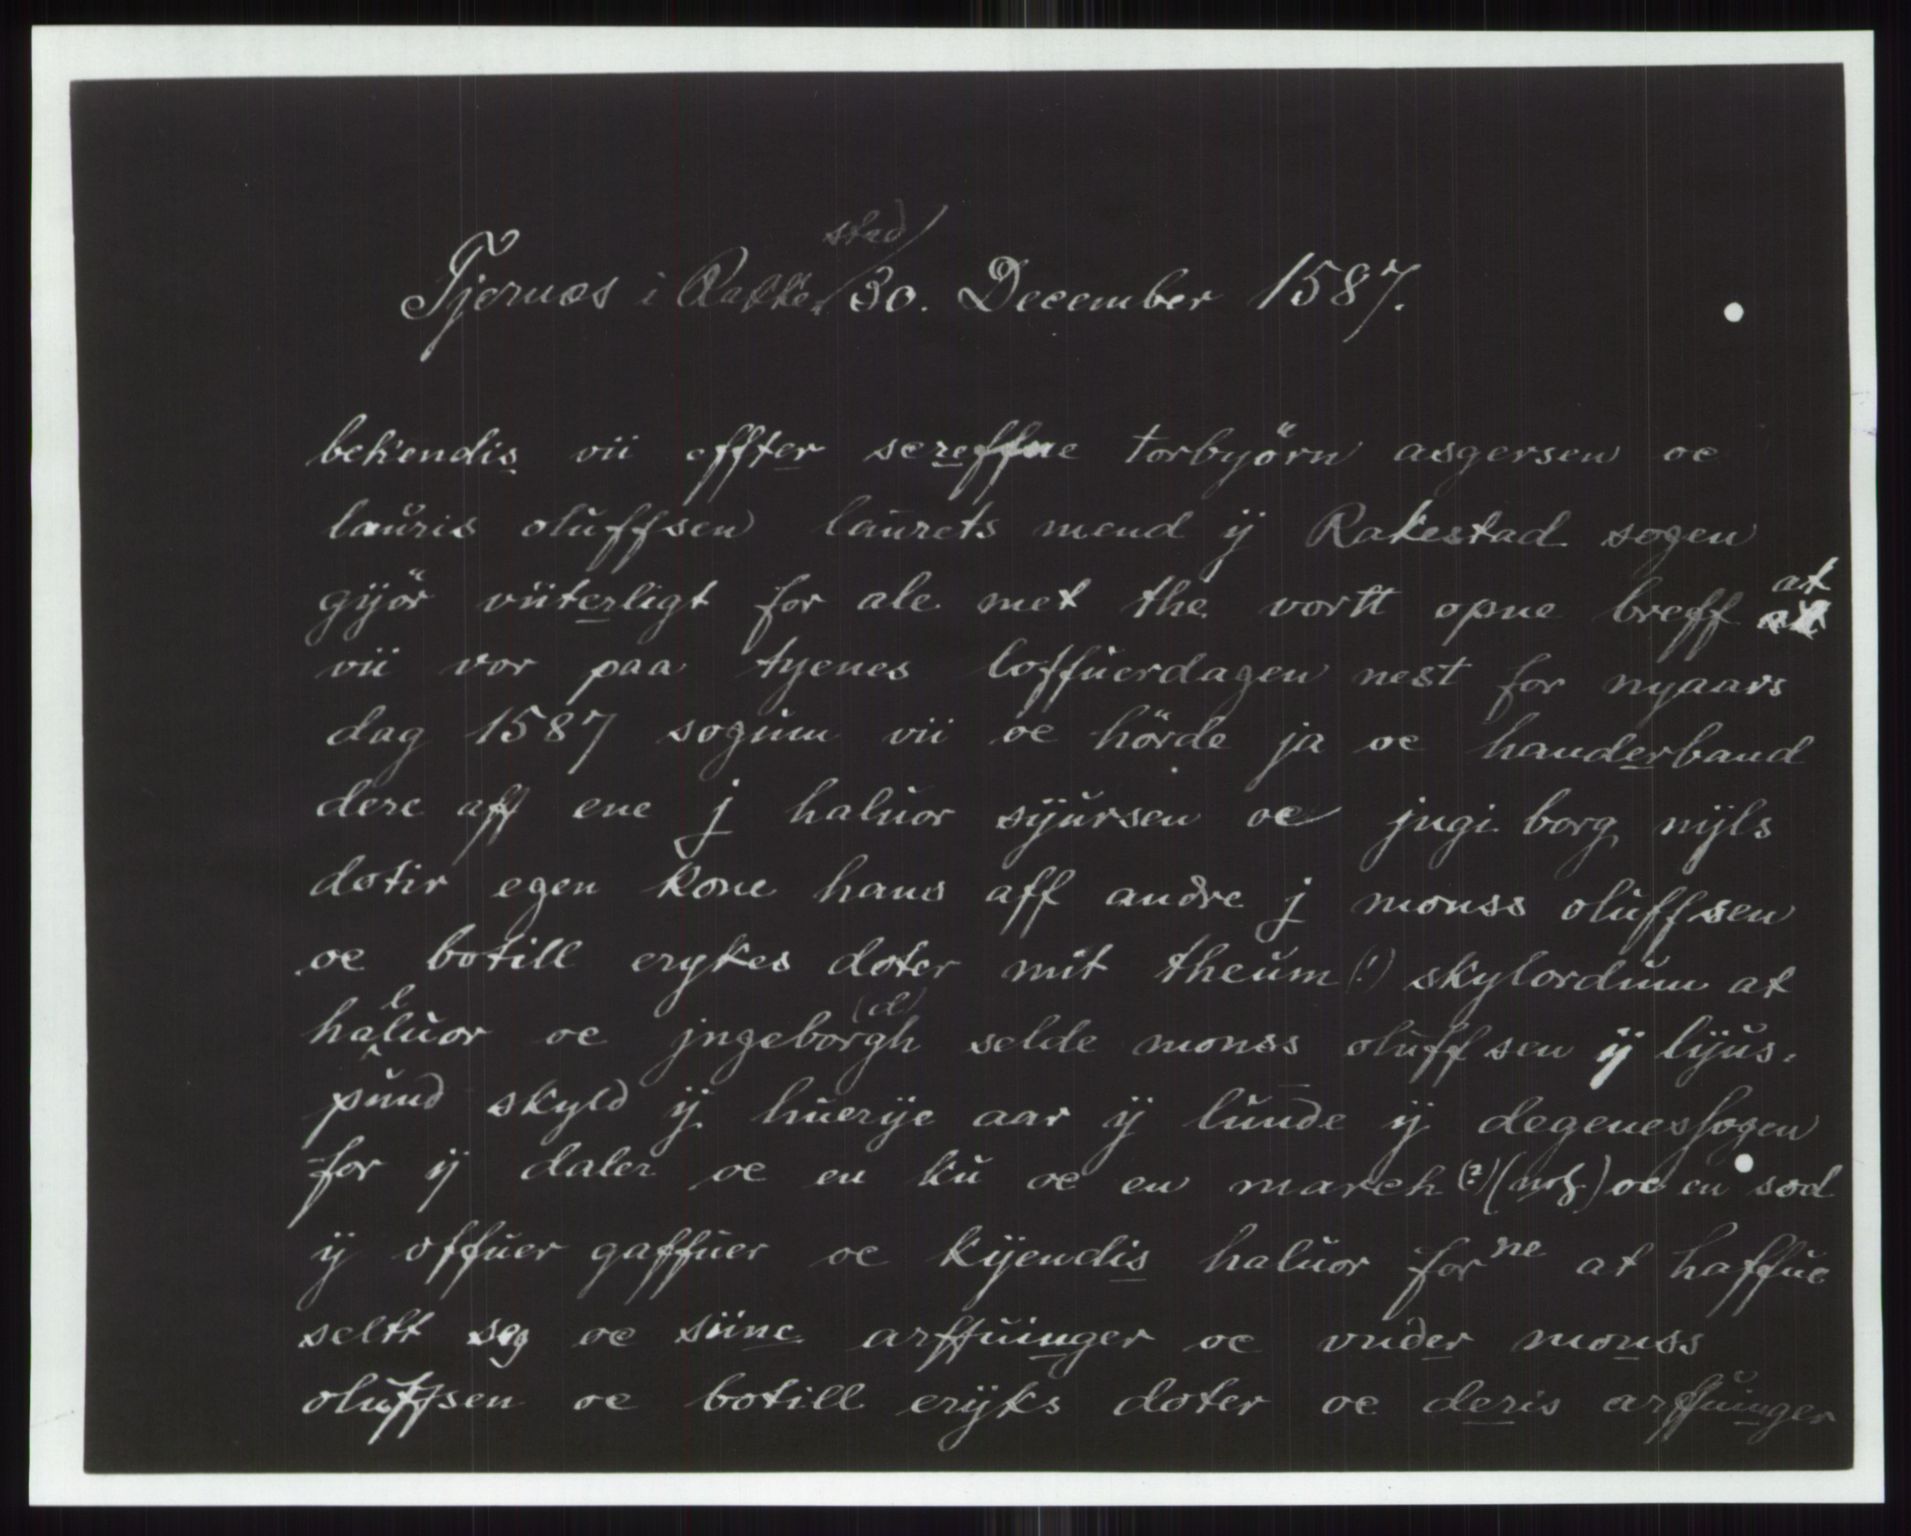 stad/
Tjernæs i Rakke 30. December 1587.
bekendis vii effter screffne torbyörn asgersen oc
lauris oluffsen laurets mend ÿ Rakestad sogen
gÿör viiterligt for ale met the vortt opne breff at
vii vor paa tyenes loffuerdagen nest for nyaars
dag 1587 sogum vii oc hörde ja oc handerband
dere aff ene j haluor sÿursen oc jngi borg nÿls
dotir egen kone hans aff andre j monss oluffsen
oc botill erykes doter mit theum (!) skylordum at
halluor oc jngeborgh (d) selde monss oluffsen ÿ lÿus-
pund skyld ÿ huerÿe aar ÿ lunde ÿ degenes sogen
for ÿ daler oc en ku oc en march (?) oc en sod
ÿ offuer gaffuer oc kÿendis haluor forne at haffue
seltt seg oc siine arffuinger oc vnder monss
oluffsen oc botill erÿks doter oc deris arffuinger